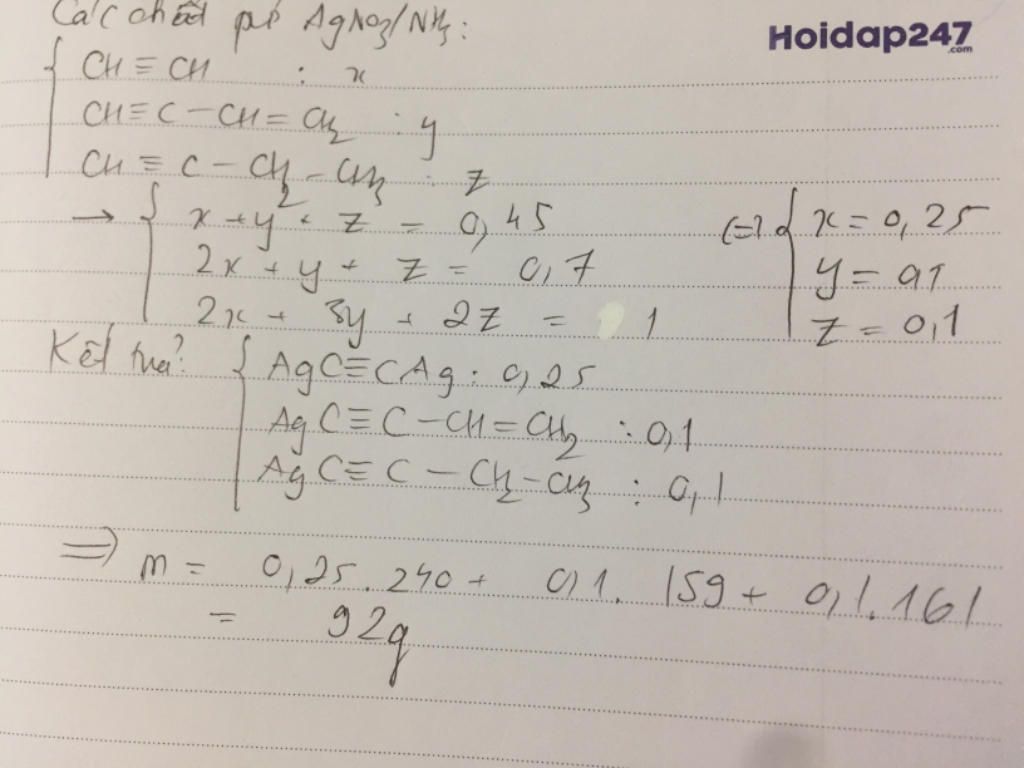 Các chất pứ AgNO3/NH3:
Hoidap247.com
CH ≡ CH : x
CH ≡ C - CH = CH2 : y
CH ≡ C - CH2 - CH3 : z
→ { x + y + z = 0,45
2x + y + z = 0,7
2x + 3y + 2z = 1
(=) { x = 0,25
y = 0,1
z = 0,1
Kết tủa: { AgC≡CAg : 0,25
AgC≡C - CH = CH2 : 0,1
AgC≡C - CH2 - CH3 : 0,1
⇒ m = 0,25.240 + 0,1.159 + 0,1.161
= 92g